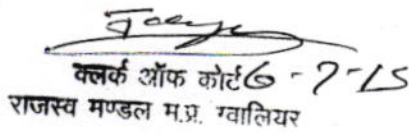 क्लर्क ऑफ कोर्ट 6-7-15
राजस्व मण्डल म.प्र. ग्वालियर